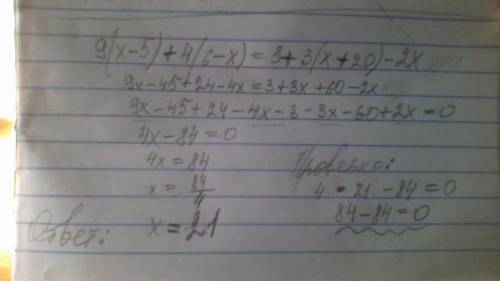 9(x-5)+4(6-x)=3+3(x+20)-2x
9x-45+24-4x=3+3x+60-2x
9x-45+24-4x-3-3x-60+2x=0
4x-84=0
4x=84
x=84/4
Ответ: x=21
Проверка:
4·21-84=0
84-84=0